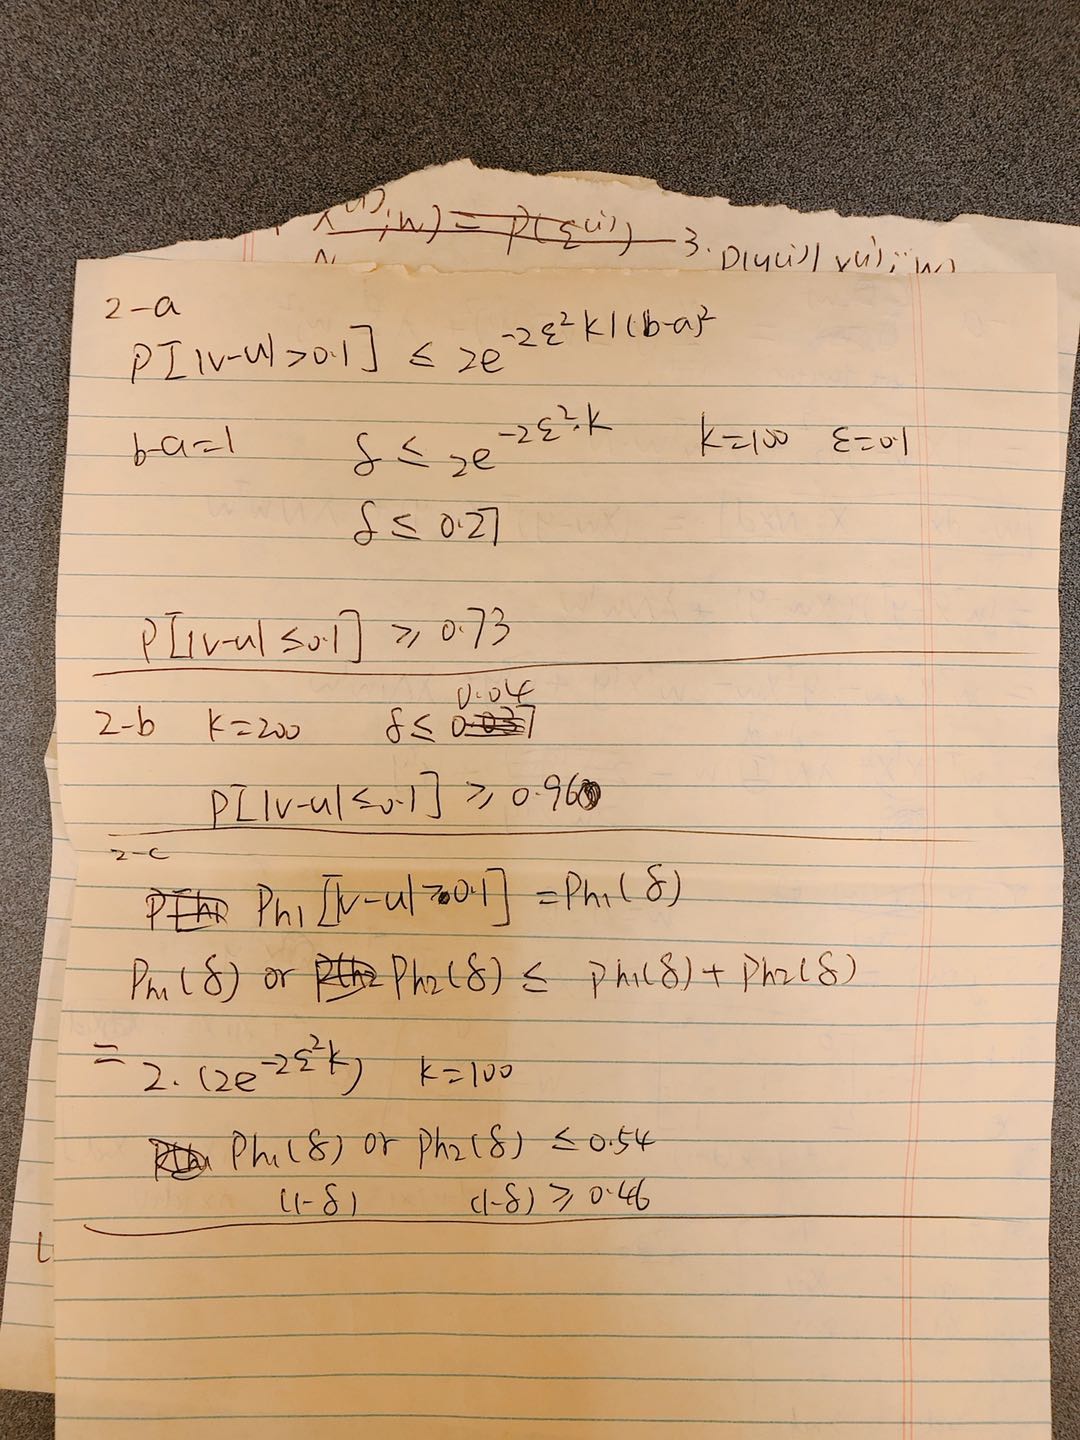 x(i);w) = P(ε(i)) 3. P(y(i)| x(i); w)
2-a
P[|v-u|>0.1] ≤ 2e^{-2ε²k/(b-a)²}
b-a=1 δ ≤ 2e^{-2ε²·k} k=100 ε=0.1
δ ≤ 0.27
P[|v-u|≤0.1] ≥ 0.73
0.04
2-b k=200 δ ≤ 0.037
P[|v-u|≤0.1] ≥ 0.96
2-c
Ph1 [|v-u|≥0.1] = Ph1(δ)
Ph1(δ) or Ph2(δ) ≤ Ph1(δ) + Ph2(δ)
= 2·(2e^{-2ε²k}) k=100
Ph1(δ) or Ph2(δ) ≤ 0.54
(1-δ) (1-δ) ≥ 0.46